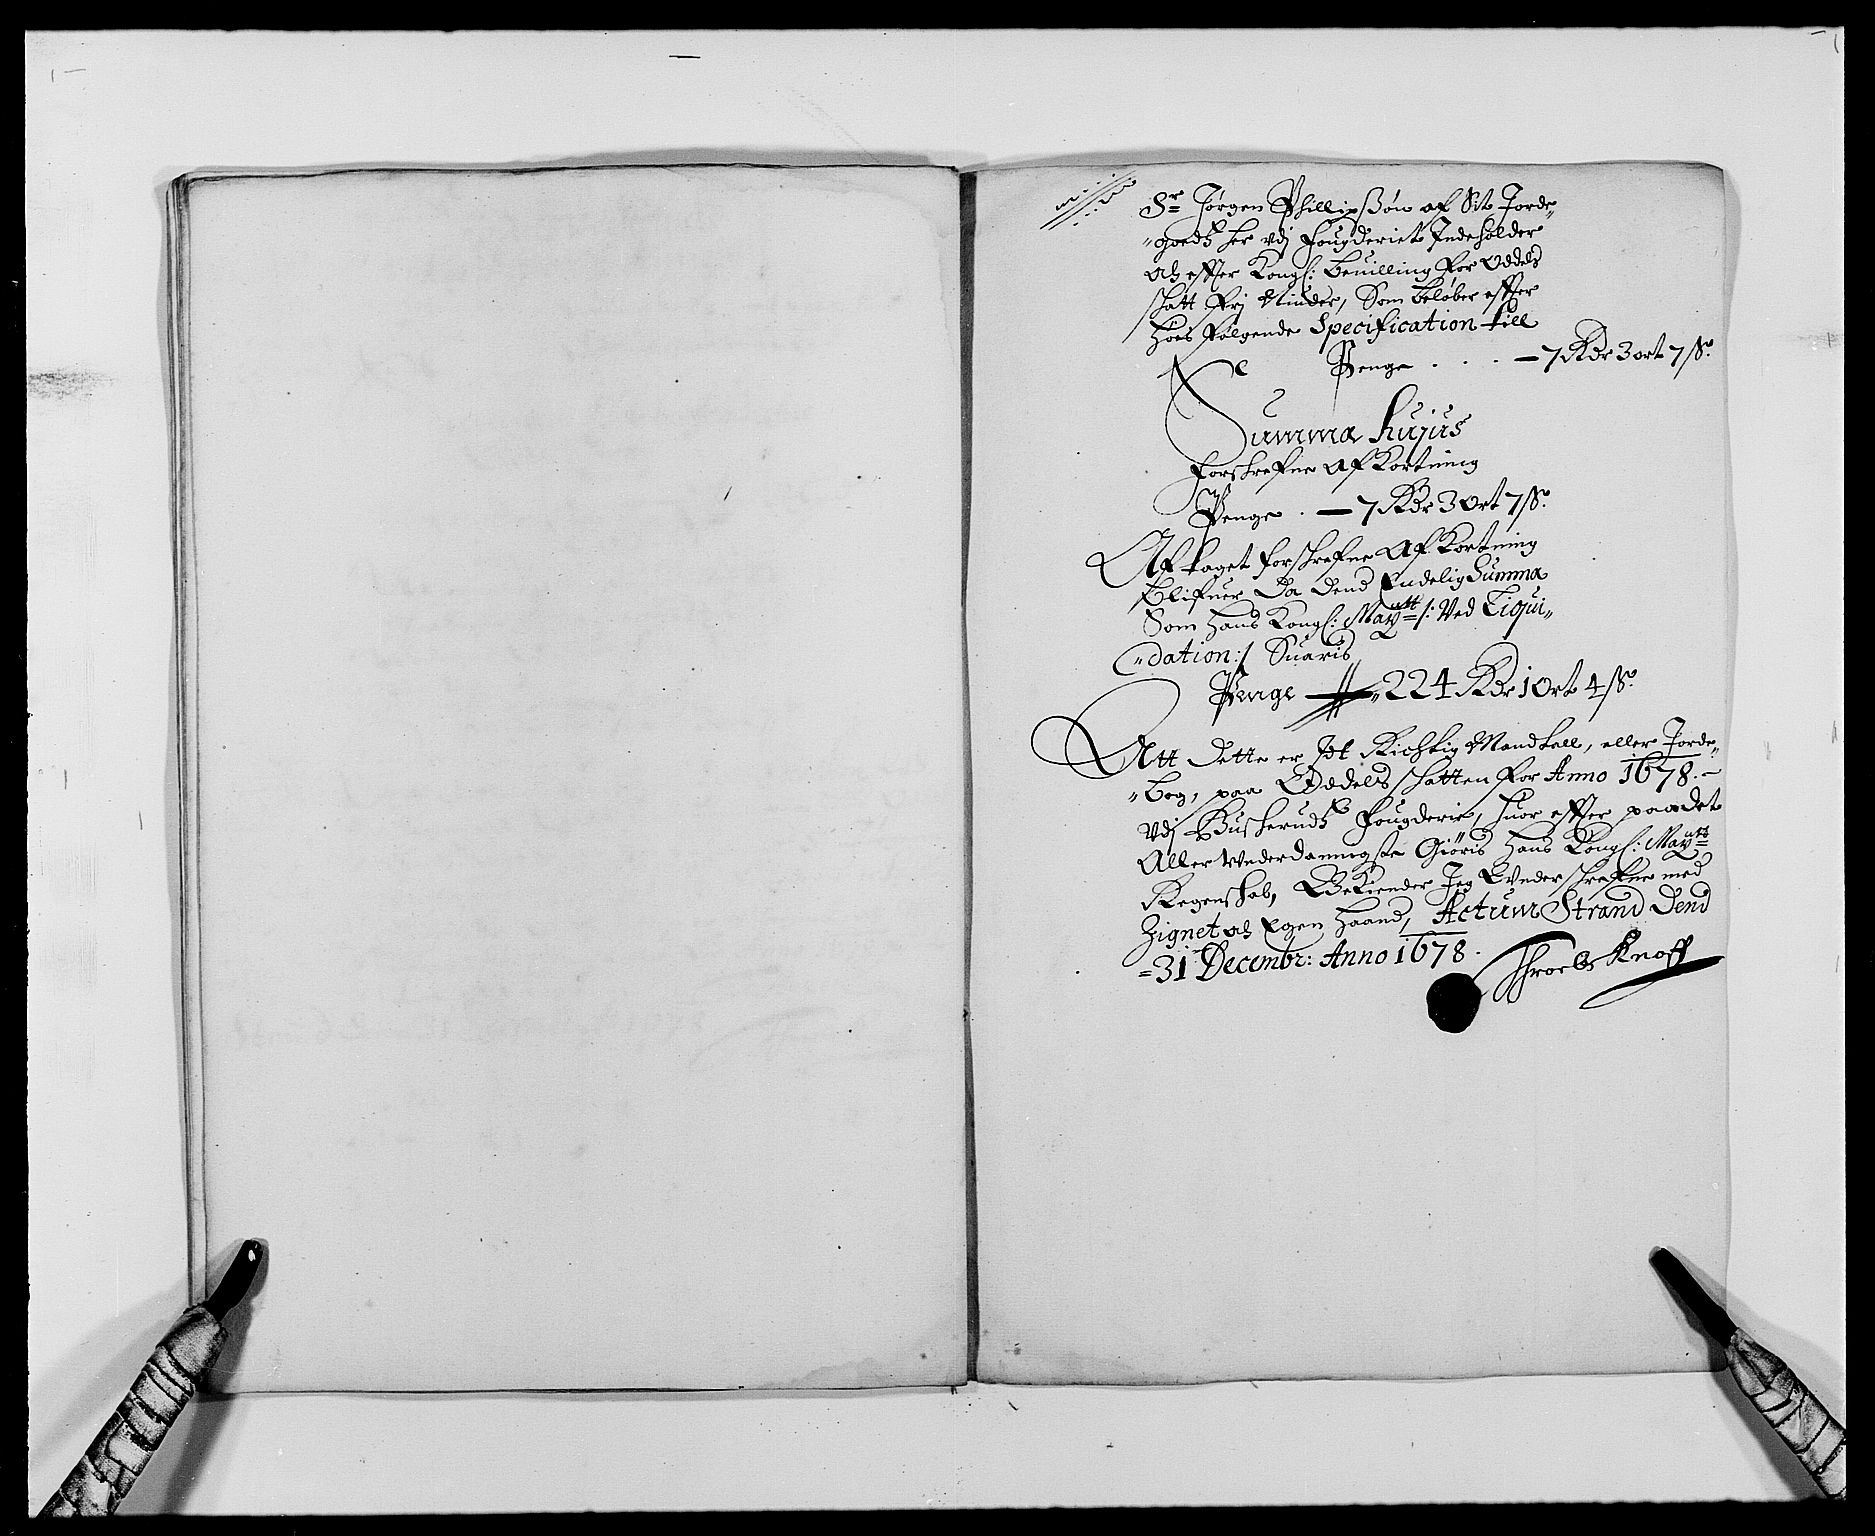 Sr Jørgen Phillipsøn af Sit Jorde„
„goedtz her vdj fougderiet Indeholder
och effter Kongl: beuilling for Oddels
skatt frj Niuder, Som beløber effter
hoes følgende Specification till
Penge . . . — 7 Rdr 3 ort 7 ß.
Summa hujus
forskrefne Af Kortning
Penge . — 7 Rdr 3 Ort 7 ß.
Aftaget forskrefne Af Kortning
blifuer Da dend Endelig Summa
Som hans Kongl: Maytt /: Ved Liqui„
„dation :/ Suaris
Penge — „ 224 Rdr 1 Ort 4 ß.
Att dette er Jet Richtig Mandtall, eller Jorde„
„bog, paa Oddels skatten for Anno 1678. –
vdj Buskerudtz fougderie, huor effter paa det
Aller Vnderdannigste Giøris hans Kongl: Maytts
Regenskab, Bekiender Jeg Vnderskrefne med
Zignet och Egen haand, Actum Strand Dend
= 31 Decembr: Anno 1678.
Knoff